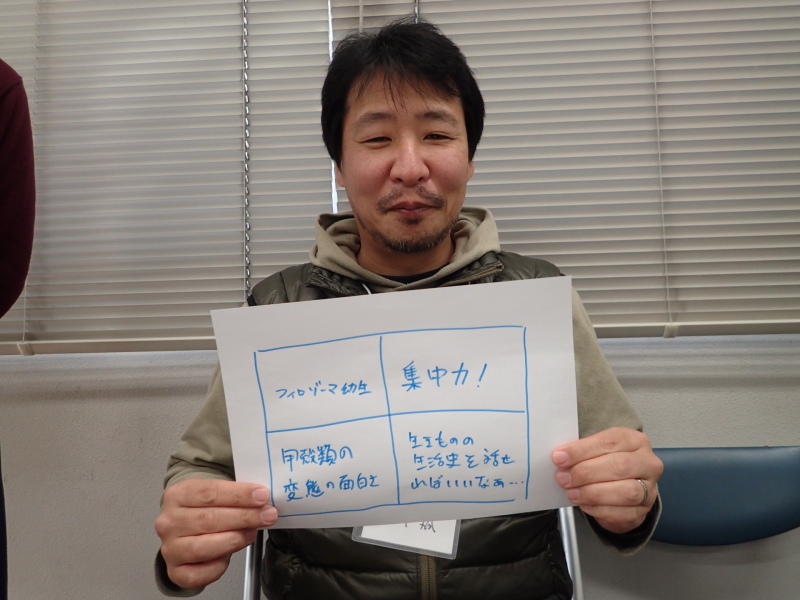 フィロゾーマ幼生
集中力!
甲殻類の
変態の面白さ
生きものの
生活史を話せ
ればいいなぁ…